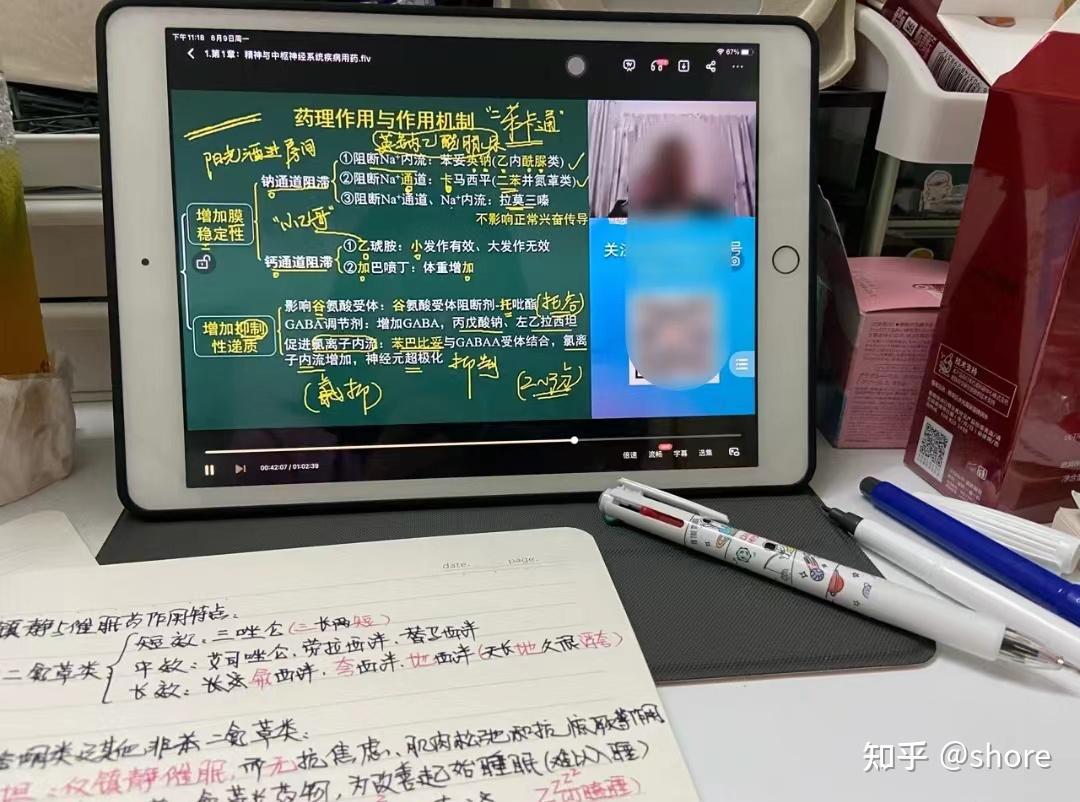 下午11:18 8月9日周一
67%
1.第1章：精神与中枢神经系统疾病用药.flv
药理作用与作用机制 “二苯卡通”
苯钠乙酸脲尿
阳光洒进房间
①阻断Na⁺内流：苯妥英钠(乙内酰脲类)
钠通道阻滞
②阻断Na⁺通道：卡马西平(二苯并氮䓬类)
③阻断Na⁺通道、Na⁺内流：拉莫三嗪
不影响正常兴奋传导
增加膜
稳定性
“小乙哥”
①乙琥胺：小发作有效、大发作无效
钙通道阻滞
②加巴喷丁：体重增加
关注
号
影响谷氨酸受体：谷氨酸受体阻断剂-托吡酯(托谷)
GABA调节剂：增加GABA，丙戊酸钠、左乙拉西坦
增加抑制
性递质
促进氯离子内流：苯巴比妥与GABAA受体结合，氯离
子内流增加，神经元超极化
抑制
(氯抑)
00:42:07 / 01:02:39
倍速 流畅 字幕 选集
技术支持
date. page.
镇静与催眠药作用特点：
短效：三唑仑(三长两短)
二氮䓬类
中效：艾司唑仑，劳拉西泮，替马西泮
长效：长氟西泮，夸西泮，地西泮(天长地久很酷夸)
类及其他非苯二氮䓬类：
坦：仅镇静催眠，而无抗焦虑、肌肉松弛和抗惊厥等作用
药物，为改善起始睡眠(难以入睡)
知乎 @shore